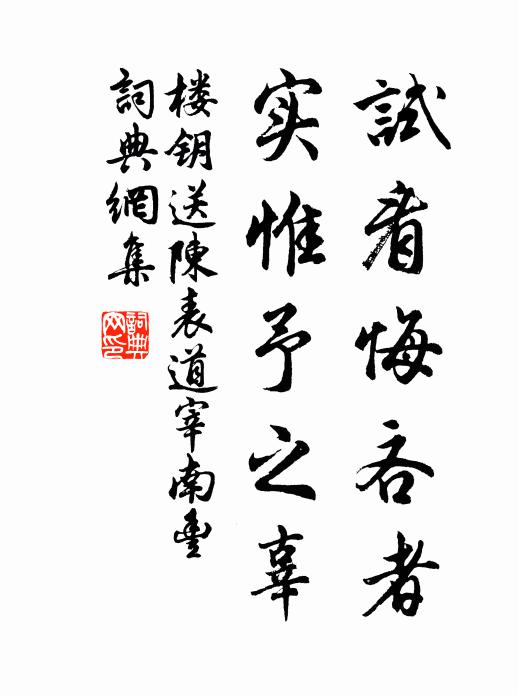 試看悔吝者
实惟予之辜
楼钥送陳表道宰南豐
詞典網集
詞典网印